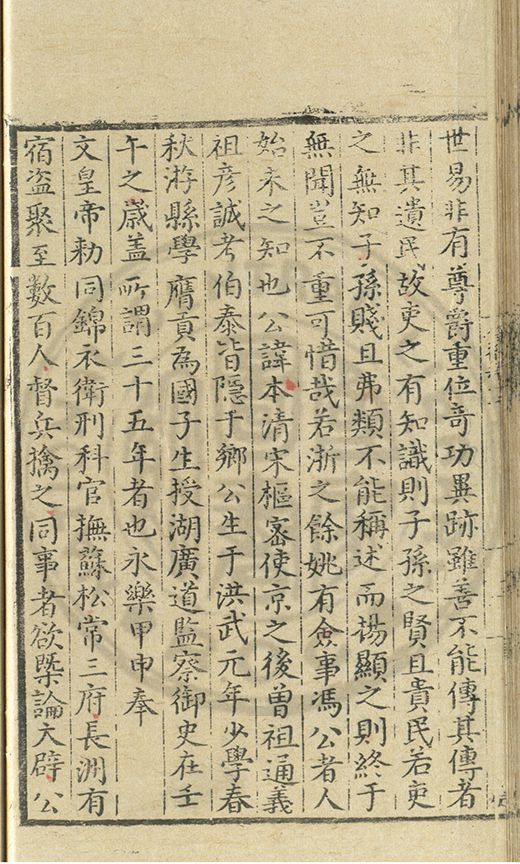 世易非有尊爵重位竒功異跡雖善不能傳其傳者
非其遺民故吏之有知識則子孫之賢且貴民若吏
之無知子孫賤且弗類不能稱述而揚顯之則終于
無聞豈不重可惜哉若浙之餘姚有僉事馮公者人
始未之知也公諱本清宋樞密使京之後曾祖通義
祖彦誠考伯泰皆隠于鄉公生于洪武元年少學春
秋游縣學膺貢為國子生授湖廣道監察御史在壬
午之嵗盖所謂三十五年者也永樂甲申奉
文皇帝勑同錦衣衛刑科官撫蘇松常三府長洲有
宿盗聚至數百人督兵擒之同事者欲槩論大辟公